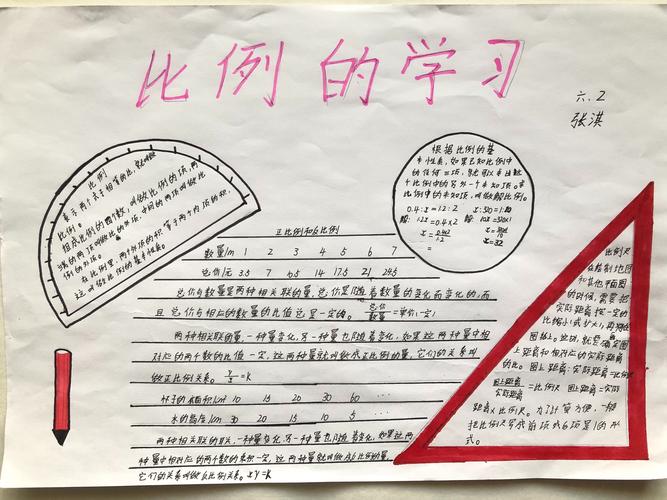 比例的学习
六.2
张淇
比例
表示两个比相等的式子叫做
比例。
组成比例的四个数,叫做比例的项,两
端的两项叫做比例的外项,中间的两项叫做比
例的内项。
在比例里,两个外项的积等于两个内项的积。
这叫做比例的基本性质。
根据比例的基
本性质,如果已知比例中
的任何三项,就可以求出这
个比例中的另外一个未知项。求
比例中的未知项,叫做解比例。
0.4:x=1.2:2
解:1.2x=0.4×2
正比例和反比例
数量/m 1 2 3 4 5 6 7
总价/元 3.5 7 10.5 14 17.5 21 24.5
总价与数量是两种相关联的量,总价是随着数量的变化而变化的,而
且总价与相应的数量的比值总是一定的。总价/数量=单价(一定)
两种相关联的量,一种量变化,另一种量也随着变化,如果这两种量中相
对应的两个数的比值一定,这两种量就叫做成正比例的量,它们的关系叫
做正比例关系。y/x=k
杯子的底面积/cm² 10 15 20 30 60 ...
水的高度/cm 30 20 15 10 5 ...
两种相关联的量,一种量变化,另一种量也随着变化,如果这两
种量中相对应的两个数的乘积一定,这两种量就叫做成反比例的量,
它们的关系叫做反比例关系。xy=k
比例尺
在绘制地图
和其他平面图
的时候,需要把
实际距离按一定的
比缩小(或扩大),再画在
图纸上。这时,就要确定图
上距离和相对应的实际距离
的比。图上距离:实际距离=比例尺
图上距离/实际距离=比例尺 图上距离=实际
距离×比例尺。为了计算方便,一般
把比例尺写成前项或后项是1的形
式。